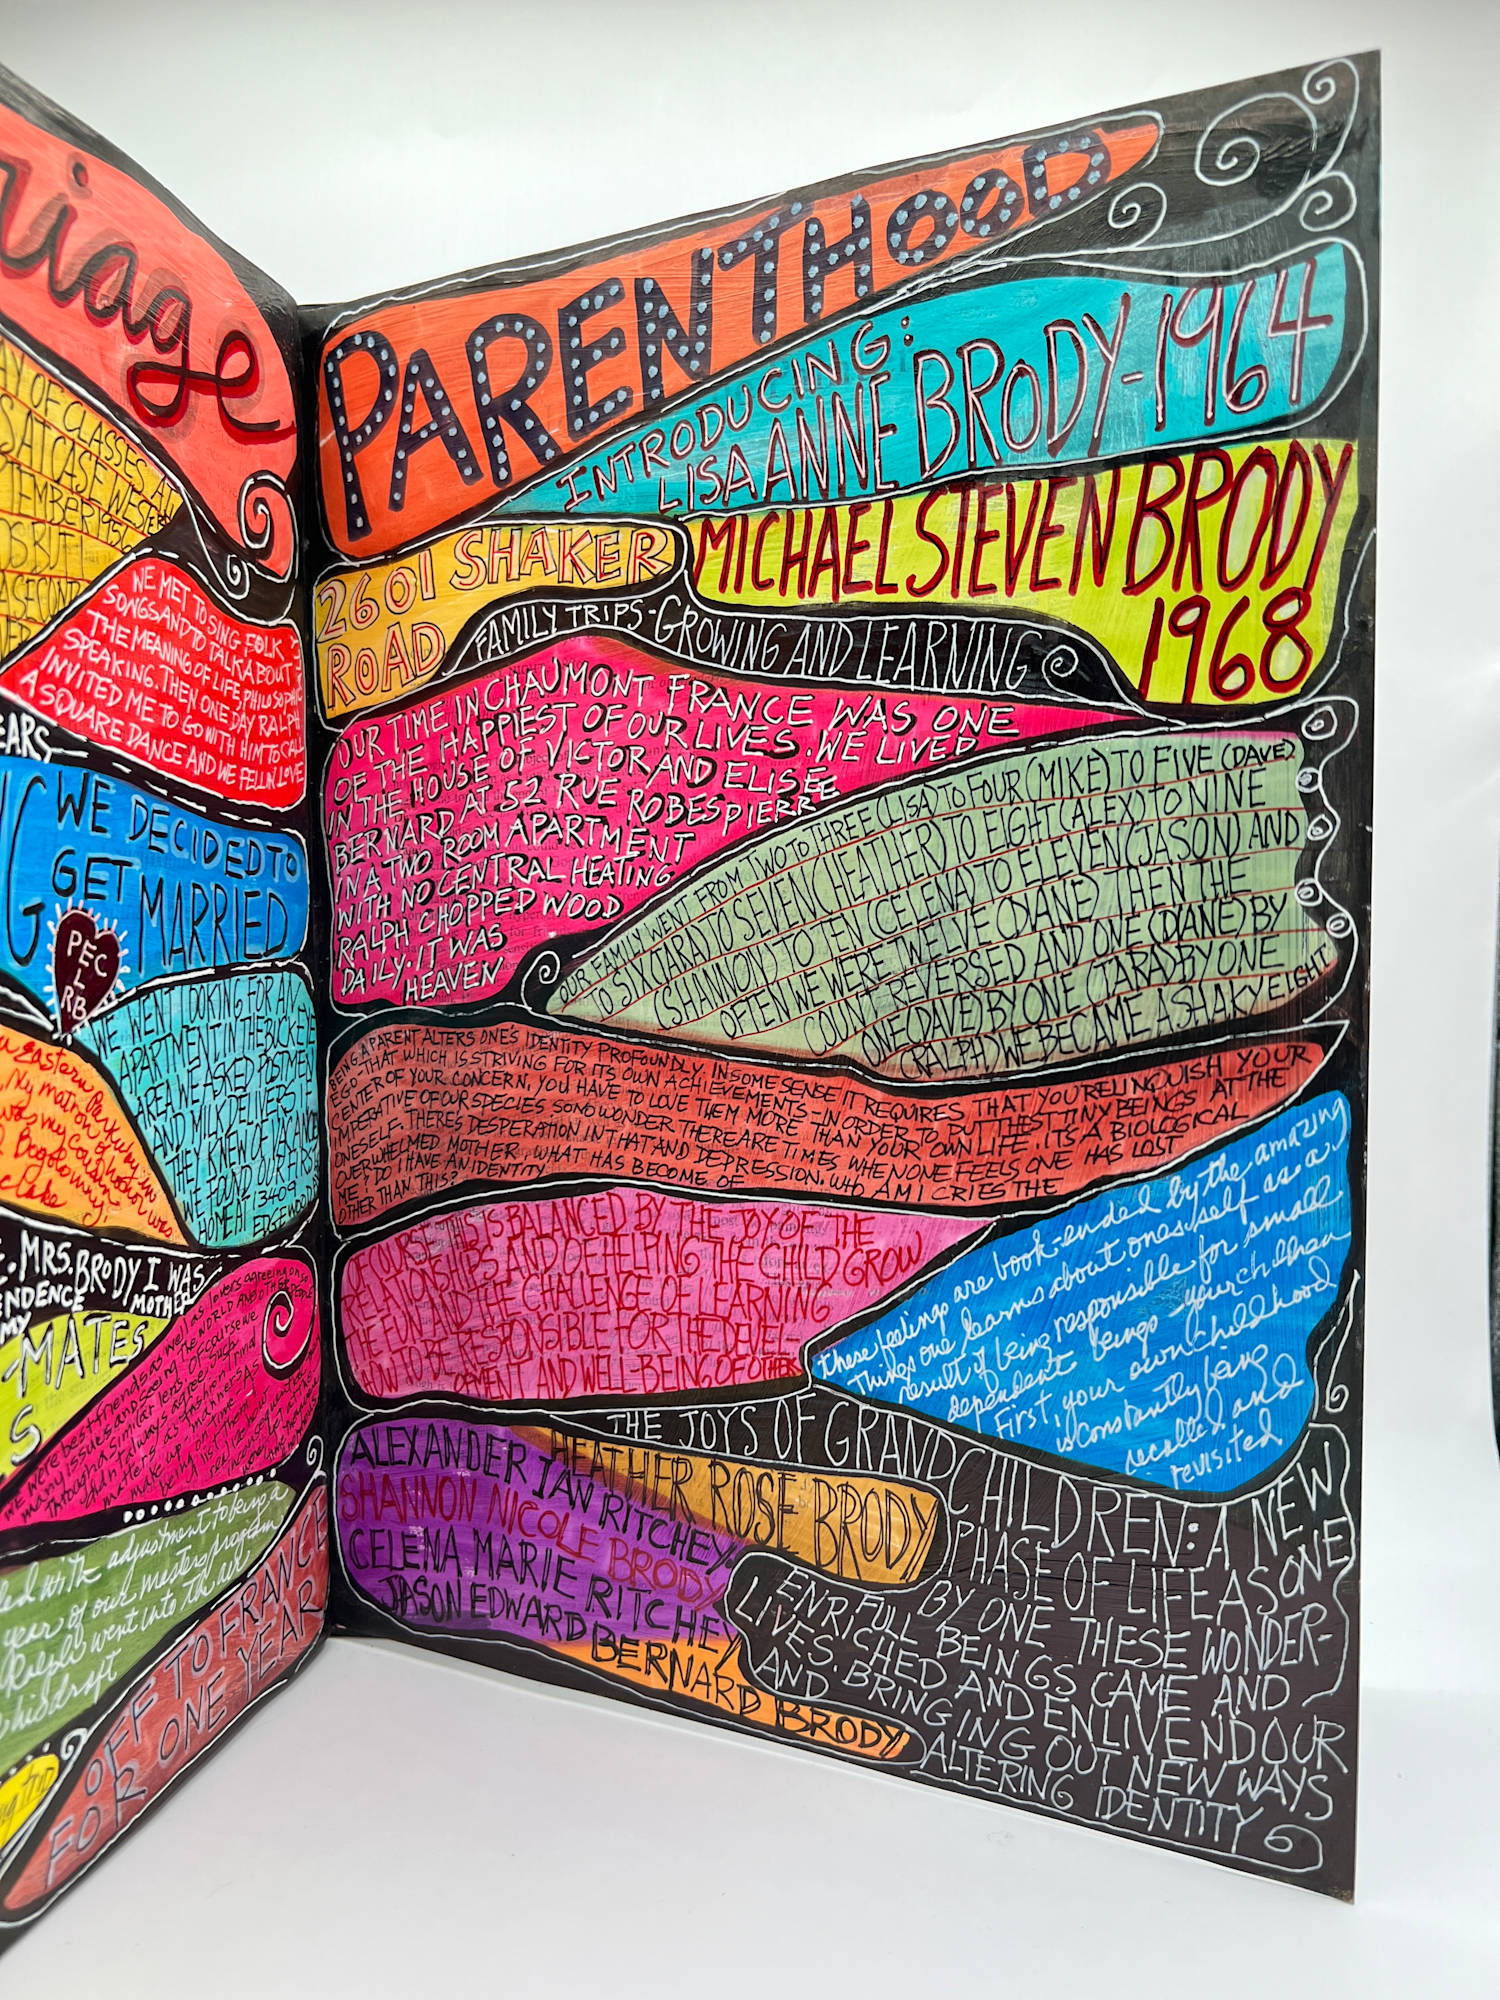 riage
Y OF CLASSES
S AT CASE WESTERN
TEMBER 1950
WE MET TO SING FOLK
SONGS AND TO TALK ABOUT
THE MEANING OF LIFE, PHILOSOPHIC
SPEAKING. THEN ONE DAY RALPH
INVITED ME TO GO WITH HIM TO CALL
A SQUARE DANCE AND WE FELL IN LOVE
EARS
WE DECIDED TO
GET MARRIED
G
PEC
L
RB
WE WENT LOOKING FOR AN
APARTMENT IN THE BUCKEYE
AREA WE ASKED POSTMEN
AND MILK DELIVERS IF
THEY KNEW OF VACANCIES
WE FOUND OUR FIRST
HOME AT 13409
EDGEWOOD
Eastern
My matron of
was my cousin
Bogdolowny;
Lake
MRS. BRODY I WAS
MOTHER
MY
MATES
S
WE were best friends as well as lovers agreeing on so
many issues and seeing the WORLD AND OTHER PEOPLE
Through a similar lens. Of course we
didn't always agree. Such
matters as the then trivial
make up my
time
adjustment to being a
year of our masters program
Ralph went into the air
his draft
OFF TO FRANCE
FOR ONE YEAR
PARENTHOOD
INTRODUCING:
LISA ANNE BRODY-1964
MICHAEL STEVEN BRODY
1968
2601 SHAKER
ROAD
FAMILY TRIPS-GROWING AND LEARNING
OUR TIME IN CHAUMONT FRANCE WAS ONE
OF THE HAPPIEST OF OUR LIVES. WE LIVED
IN THE HOUSE OF VICTOR AND ELISEE
BERNARD AT 52 RUE ROBESPIERRE
IN A TWO ROOM APARTMENT
WITH NO CENTRAL HEATING
RALPH CHOPPED WOOD
DAILY. IT WAS
HEAVEN
OUR FAMILY WENT FROM TWO TO THREE (LISA) TO FOUR (MIKE) TO FIVE (DAVE)
TO SIX (TARA) TO SEVEN (HEATHER) TO EIGHT (ALEX) TO NINE
(SHANNON) TO TEN (CELENA) TO ELEVEN (JASON) AND
OFTEN WE WERE TWELVE (DIANE) THEN THE
COUNT REVERSED AND ONE (DIANE) BY
ONE (DAVE) BY ONE (TARA) BY ONE
(RALPH) WE BECAME A SHAKY EIGHT
BEING A PARENT ALTERS ONE'S IDENTITY PROFOUNDLY. IN SOME SENSE IT REQUIRES THAT YOU RELINQUISH YOUR
EGO THAT WHICH IS STRIVING FOR ITS OWN ACHIEVEMENTS-IN ORDER TO PUT THESE TINY BEINGS AT THE
CENTER OF YOUR CONCERN. YOU HAVE TO LOVE THEM MORE THAN YOUR OWN LIFE. ITS A BIOLOGICAL
IMPERATIVE OF OUR SPECIES SO NO WONDER THERE ARE TIMES WHEN ONE FEELS ONE HAS LOST
ONESELF. THERE'S DESPERATION IN THAT AND DEPRESSION. WHO AM I CRIES THE
OVERWHELMED MOTHER. WHAT HAS BECOME OF
ME? DO I HAVE AN IDENTITY
OTHER THAN THIS?
OF COURSE THIS IS BALANCED BY THE JOY OF THE
RELATIONSHIPS AND OF HELPING THE CHILD GROW
THE FUN AND THE CHALLENGE OF LEARNING
HOW TO BE RESPONSIBLE FOR THE DEVEL-
OPMENT AND WELL-BEING OF OTHERS
These feelings are book-ended by the amazing
Things one learns about ones self as a
result of being responsible for small
dependent beings - your children
First, your own childhood
is constantly being
recalled and
revisited
THE JOYS OF GRANDCHILDREN: A NEW
PHASE OF LIFE AS ONE
BY ONE THESE WONDER-
FULL BEINGS CAME AND
ENRICHED AND ENLIVENED OUR
LIVES. BRINGING OUT NEW WAYS
AND ALTERING IDENTITY
ALEXANDER IAN RITCHEY
HEATHER ROSE BRODY
SHANNON NICOLE BRODY
CELENA MARIE RITCHEY
JASON EDWARD BERNARD BRODY